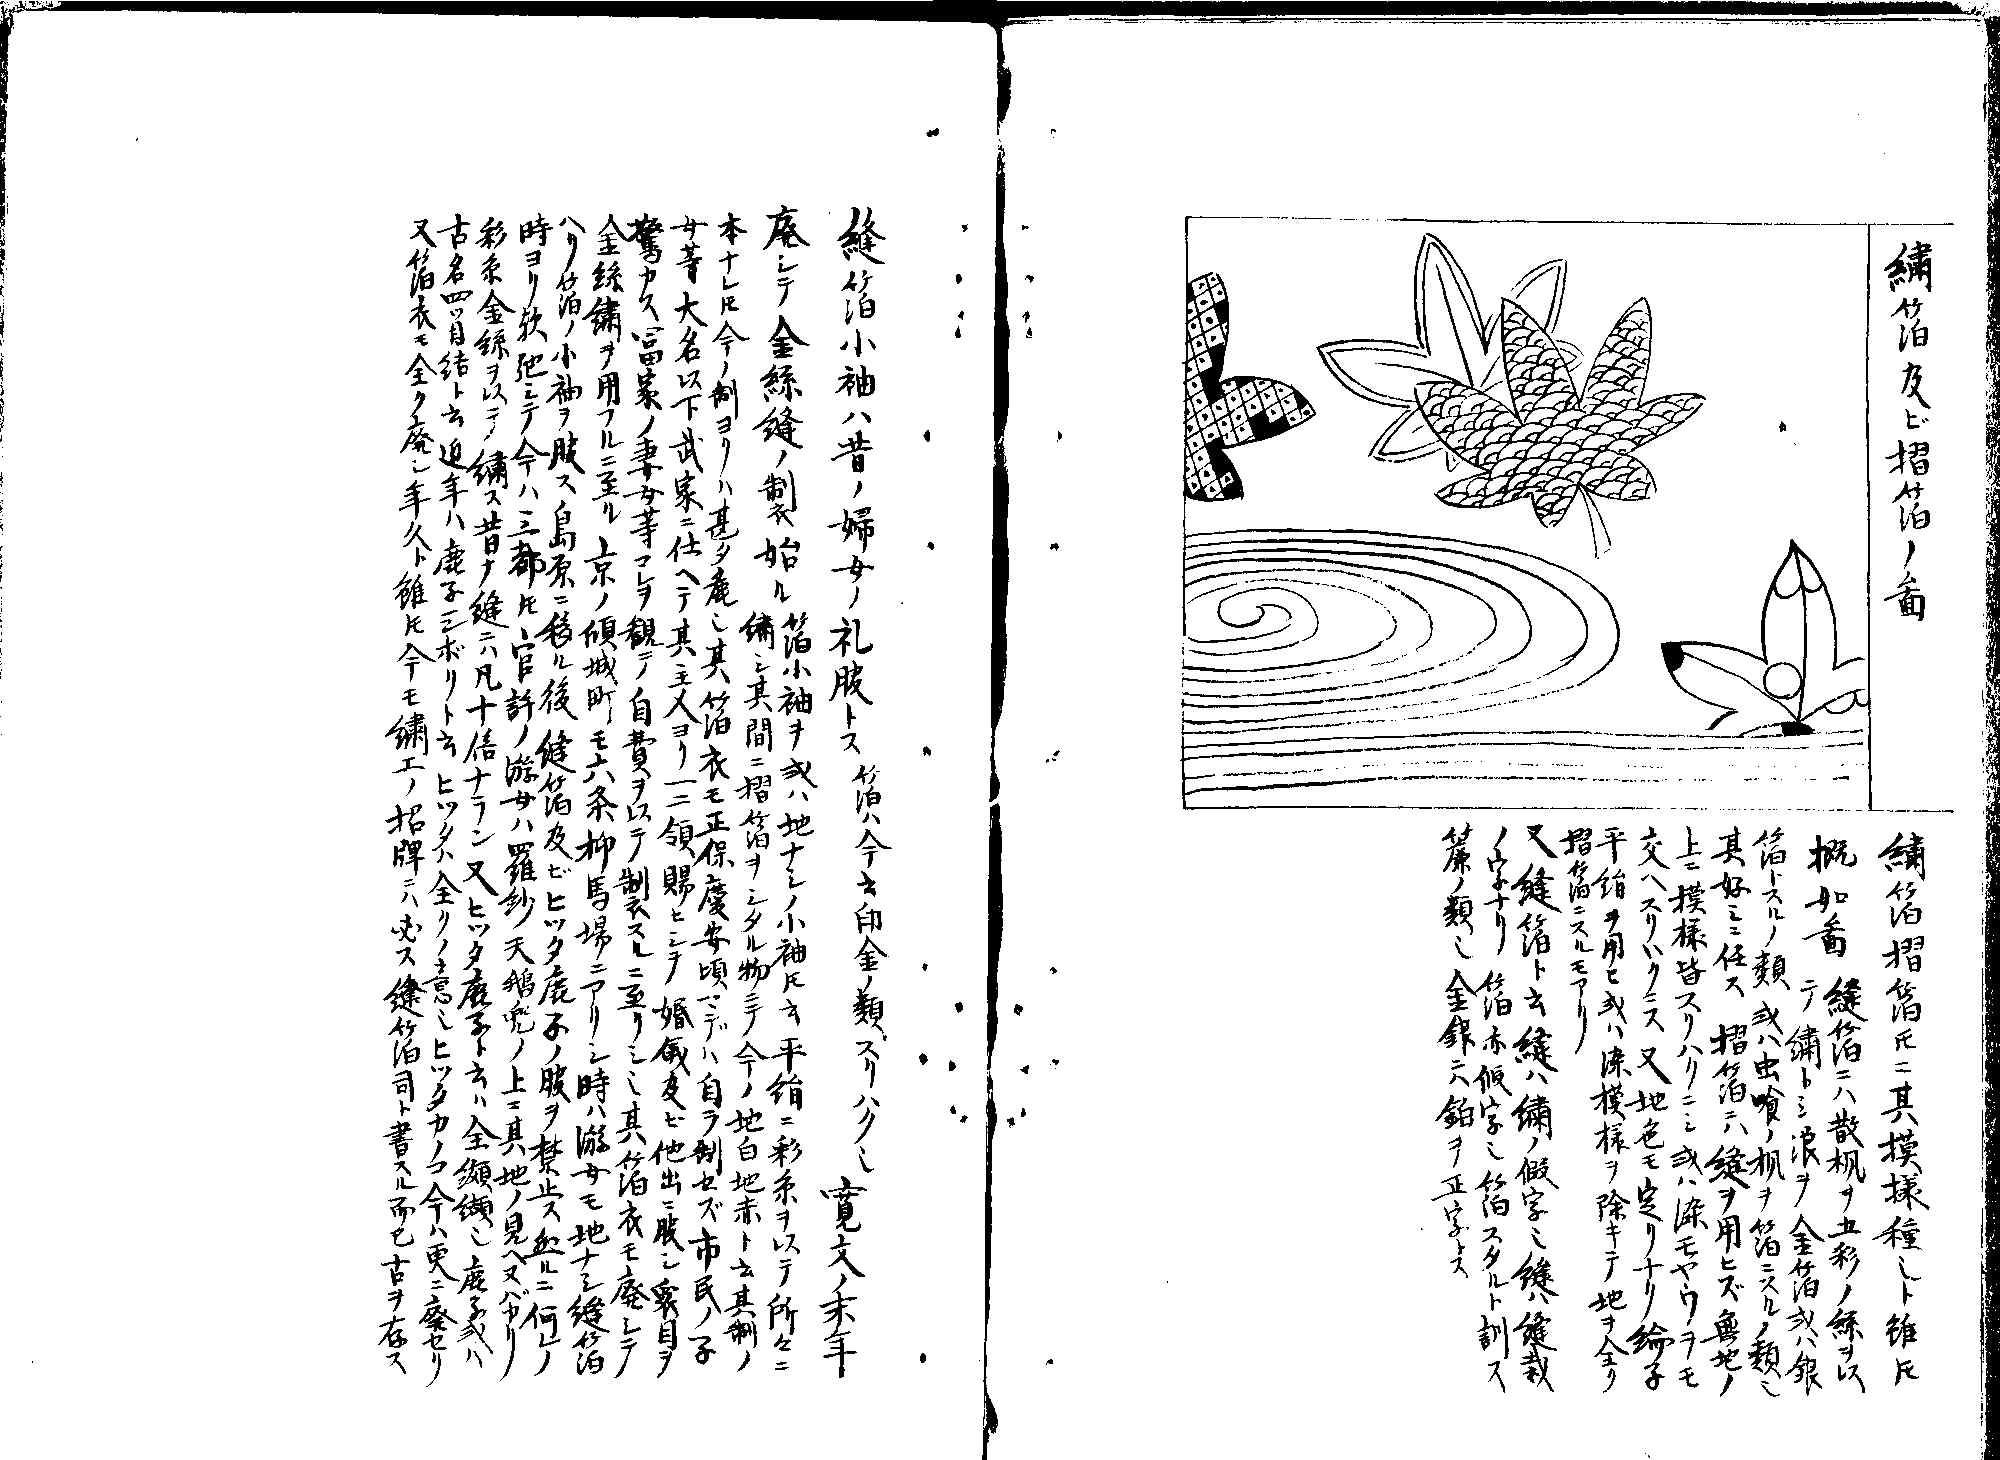 繍箔及ビ摺箔ノ畐
繍箔摺箔𪜈ニ其摸様種〻ト雖𪜈
概如畐 縫箔ニハ散楓ヲ五彩ノ絲ヲ以
テ繍トシ浪ヲ金箔或ハ銀
箔トスルノ類或ハ虫喰ノ楓ヲ箔ニスルノ類也
其好ミニ任ス 摺箔ニハ縫ヲ用ヒズ無地ノ
上ニ模様皆スリハクニシ或ハ染モヤウヲモ
交ヘスリハクニス又地色モ定リナリ綸子
平絹ヲ用ヒ或ハ染模様ヲ除キテ地ヲ全ク
摺箔ニスルモアリ
又縫箔ト云縫ハ繍ノ假字也縫ハ縫裁
ノ字ナリ 箔亦仮字也箔スタルト訓ス
簾ノ類也金銀ニハ鉑ヲ正字トス
縫箔小袖ハ昔ノ婦女ノ礼服トス 箔ハ今云印金ノ類スリハク也 寛文ノ末年
廃シテ金絲縫ノ制衣始ル 箔小袖ヲ或ハ地ナシノ小袖𪜈云平絹ニ彩糸ヲ以テ所々ニ
繍シ其間ニ摺箔ヲシタル物ニテ今ノ地白地赤ト云其制ノ
本ナレ𪜈今ノ制ヨリハ甚タ麁也其箔衣モ正保慶安頃マデハ自ラ制セズ市民ノ子
女等大名以下武家ニ仕ヘテ其主人ヨリ一二領賜ヒシヲ婚儀及ビ他出ニ服シ衆目ヲ
驚カス冨家ノ妻女等コレヲ観テ自費ヲ以テ制衣スルニ至リシ也其箔衣モ廃シテ
金絲繍ヲ用フルニ至ル 京ノ傾城町モ六条柳馬場ニアリシ時ハ游女モ地ナシ縫箔
ハリ箔ノ小袖ヲ服ス島原ニ移ル後縫箔及ビヒツタ鹿子ノ服ヲ禁止ス然ルニ何レノ
時ヨリ欤弛ミテ今ハ三都𪜈官許ノ游女ハ羅紗天鵞絨ノ上ニ其地ノ見ヘヌバカリ
彩糸金絲ヲ以テ繍ス昔ナ縫ニハ凡十倍ナラン又ヒツタ鹿子ト云ハ全纐纈也鹿子或ハ
古名四ツ目結ト云近年ハ鹿子シボリト云ヒツタハ全クノ意也ヒツタカノコ今ハ更ニ廃セリ
又箔衣モ全ク廃シ年久ト雖𪜈今モ繍工ノ招牌ニハ必ス縫箔司ト書スル而已古ヲ存ス